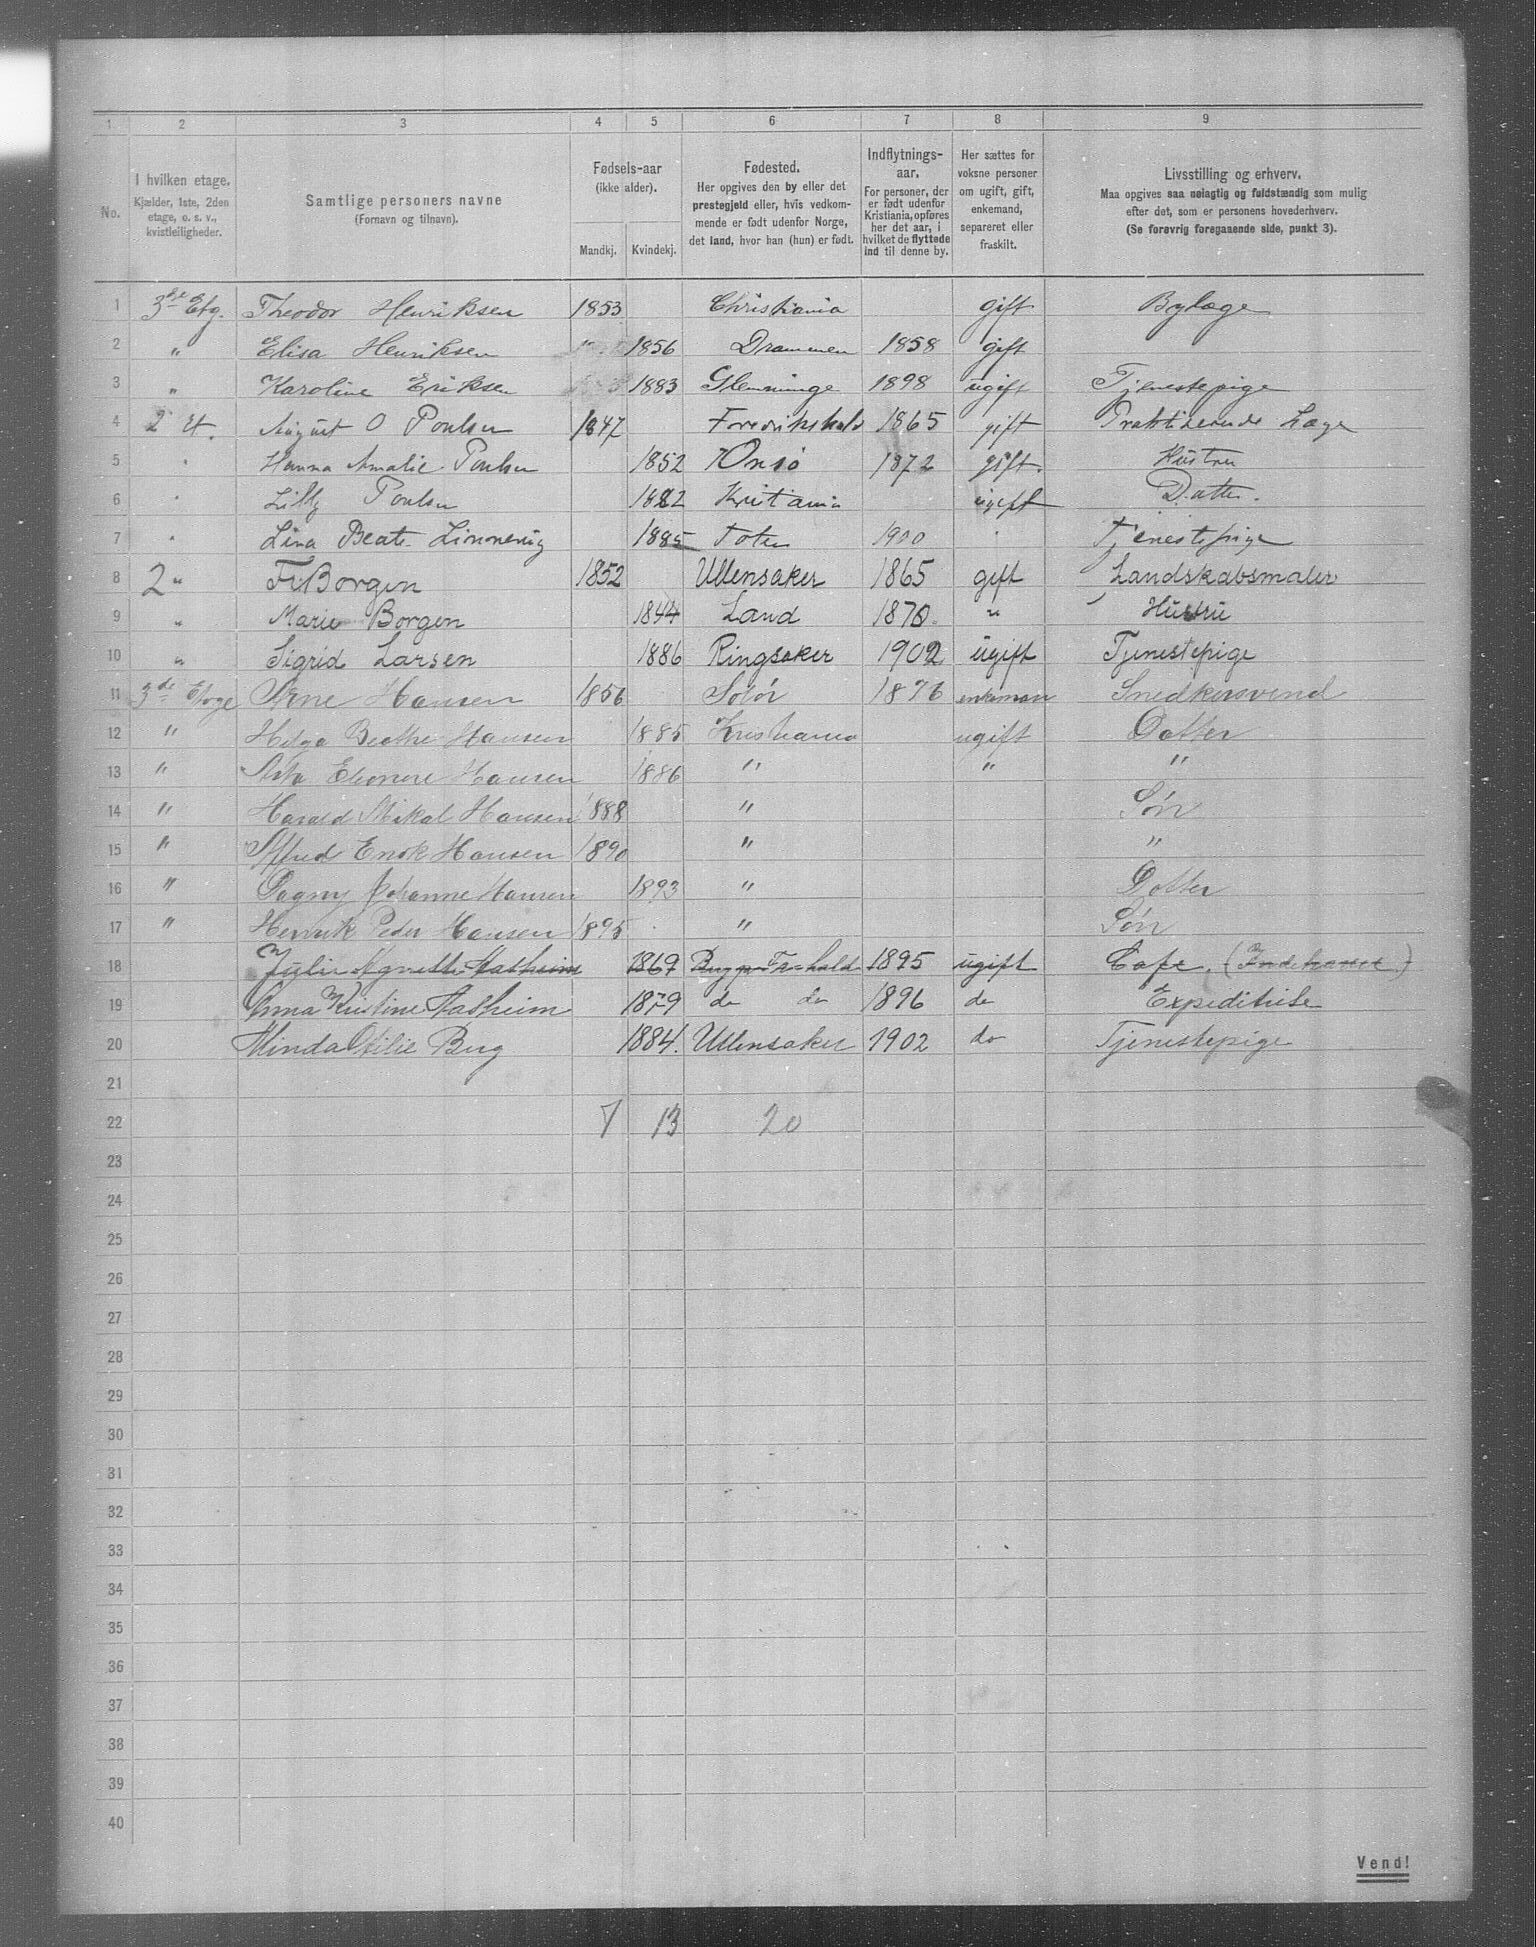 1 2 3 4 5 6 7 8 9
No.
I hvilken etage.
Kjælder, 1ste, 2den
etage, o. s. v.,
kvistleiligheder.
Samtlige personers navne
(Fornavn og tilnavn).
Fødsels-aar
(ikke alder).
Mandkj. Kvindekj.
Fødested.
Her opgives den by eller det
prestegjeld eller, hvis vedkom-
mende er født udenfor Norge,
det land, hvor han (hun) er født.
Indflytnings-
aar.
For personer, der
er født udenfor
Kristiania, opføres
her det aar, i
hvilket de flyttede
ind til denne by.
Her sættes for
voksne personer
om ugift, gift,
enkemand,
separeret eller
fraskilt.
Livsstilling og erhverv.
Maa opgives saa nøiagtig og fuldstændig som mulig
efter det, som er personens hovederhverv.
(Se forøvrig foregaaende side, punkt 3).
1 3die Etg. Theodor Henriksen 1853 Christiania gift Bylæge
2 " Elisa Henriksen 1856 Drammen 1858 gift
3 " Karoline Eriksen 1883 Glemminge 1898 ugift Tjenestepige
4 2 Et. August O Poulsen 1847 Fredrikshald 1865 gift Praktiserende Læge
5 " Hanna Amalie Poulsen 1852 Onsø 1872 gift. Hustru
6 " Lilly Poulsen 1882 Kristiania ugift Datter.
7 " Lina Beate Linnervig 1885 Toten 1900 " Tjenestepige
8 2 " Fr Borgen 1852 Ullensaker 1865 gift Landskabsmaler
9 " Marie Borgen 1844 Land 1870. " Hustru
10 " Sigrid Larsen 1886 Ringsaker 1902 ugift Tjenestepige
11 3de Etage Arne Hansen 1856 Solør 1876 enkeman Snedkersvend
12 " Helga Beathe Hansen 1885 Kristiania ugift Datter
13 " Asta Eleonore Hansen 1886 " " "
14 " Harald Mikal Hansen 1888 " Søn
15 " Alfred Enok Hansen 1890 " "
16 " Dagny Johanne Hansen 1893 " Datter
17 " Henrik Peder Hansen 1895 " Søn
18 Julie Agnette Aasheim 1869 Berg pr Fr-hald 1895 ugift Cafe. (Indehaver.)
19 Anna Kristine Aasheim 1879 do do 1896 do Expeditrise
20 Minda Otilie Berg 1884. Ullensaker 1902 do Tjenestepige
21
22 7 13 20
23
24
25
26
27
28
29
30
31
32
33
34
35
36
37
38
39
40
Vend!